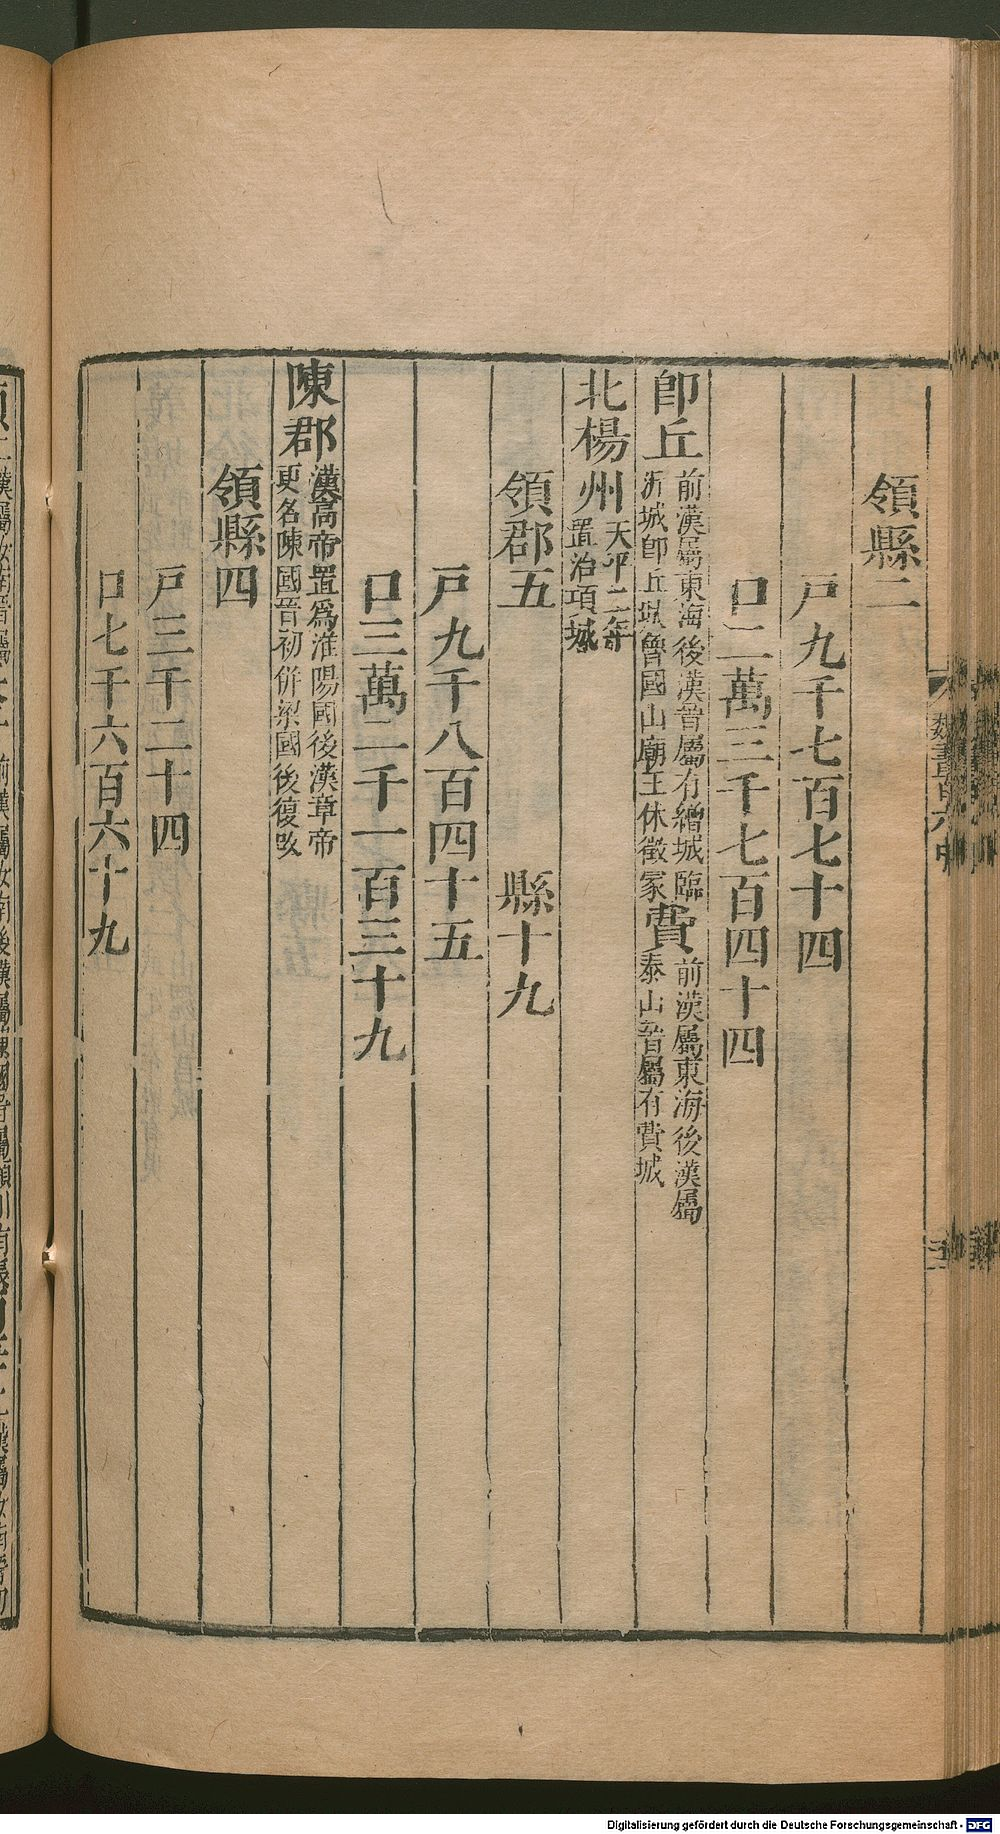 領縣二
戶九千七百七十四
口二萬三千七百四十四
卽丘前漢屬東海後漢晉屬有繒城臨沂城卽丘城魯國山廟王休徵冢費前漢屬東海後漢屬泰山晉屬有費城
北楊州天平二年置治項城
領郡五 縣十九
戶九千八百四十五
口三萬二千一百三十九
陳郡漢高帝置爲淮陽國後漢章帝更名陳國晉初併梁國後復改
領縣四
戶三千二十四
口七千六百六十九
Digitalisierung gefördert durch die Deutsche Forschungsgemeinschaft - DFG